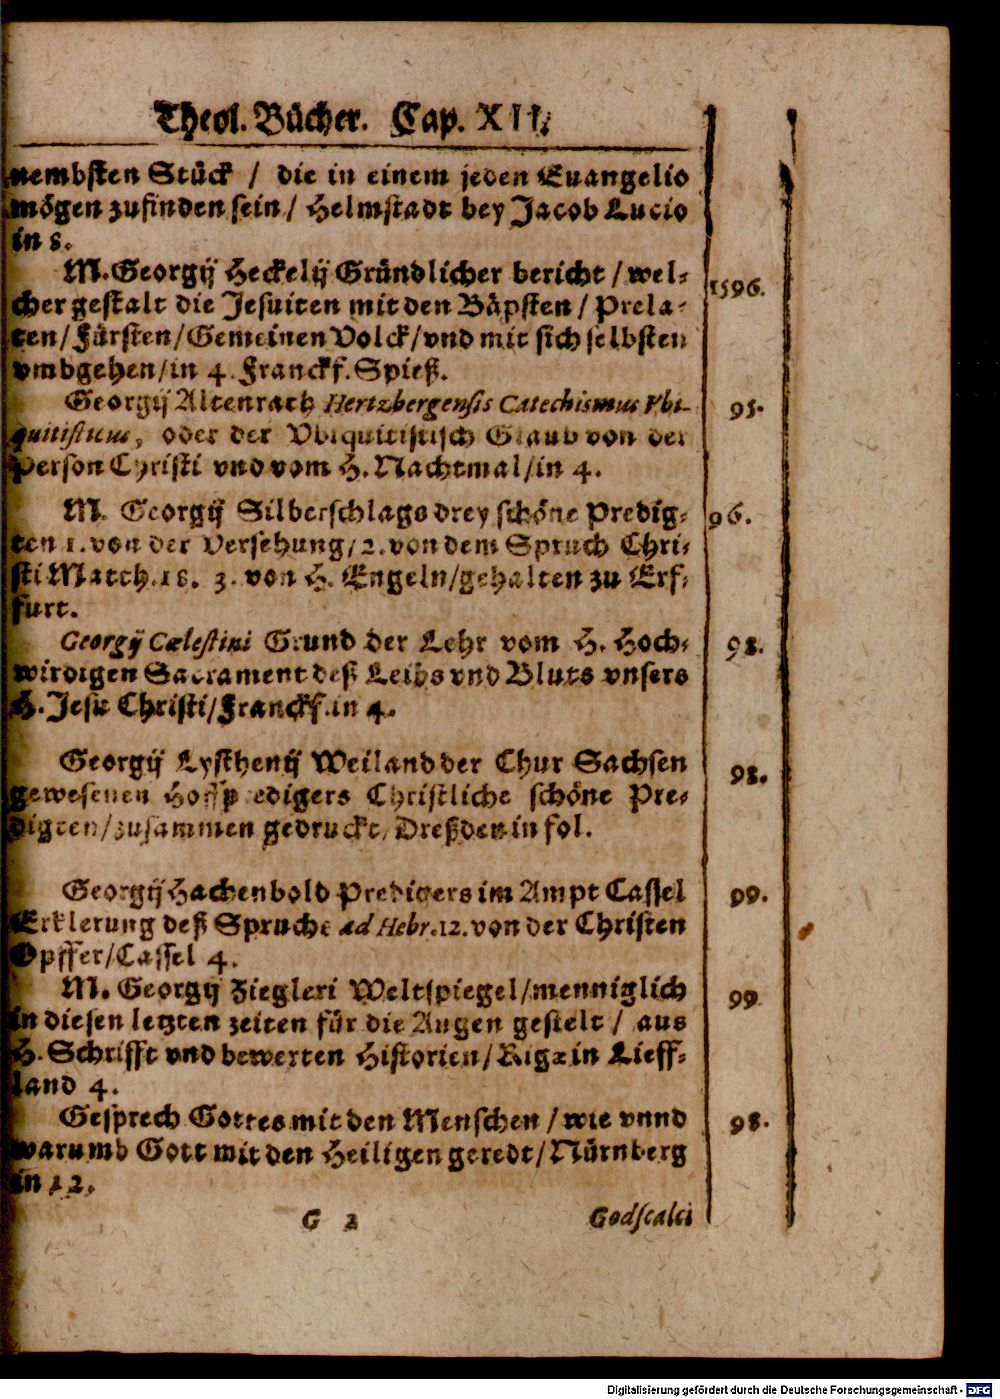 Theol. Bücher. Cap. XII.
nembsten Stück / die in einem jeden Euangelio
mögen zufinden sein / Helmstadt bey Jacob Lucio
in 8.
M. Georgij Heckelij Gründlicher bericht / wel-
cher gestalt die Jesuiten mit den Bäpsten / Prela-
ten / Fürsten / Gemeinen Volck / vnd mit sich selbsten
vmbgehen / in 4. Franckf. Spieß.
1596.
Georgij Altenrath Hertzbergensis Catechismus Vbi-
quitisticus, oder der Vbiquitistisch Glaub von der
Person Christi vnd vom H. Nachtmal / in 4.
95.
M. Georgij Silberschlags drey schöne Predig-
ten 1. von der Versehung / 2. von dem Spruch Chri-
sti Matth. 18. 3. von H. Engeln / gehalten zu Erf-
furt.
96.
Georgij Cælestini Grund der Lehr vom H. Hoch-
wirdigen Sacrament deß Leibs vnd Bluts vnsers
H. Jesu Christi / Franckf. in 4.
98.
Georgij Lysthenij Weiland der Chur Sachsen
gewesenen Hoffpredigers Christliche schöne Pre-
digten / zusammen gedruckt / Dreßden in fol.
98.
Georgij Hachenbold Predigers im Ampt Cassel
Erklerung deß Spruchs ad Hebr. 12. von der Christen
Opffer / Cassel 4.
99.
M. Georgij Ziegleri Weltspiegel / menniglich
in diesen letzten zeiten für die Augen gestelt / aus
H. Schrifft vnd bewerten Historien / Rigæ in Lieff-
land 4.
99
Gesprech Gottes mit den Menschen / wie vnnd
warumb Gott mit den Heiligen geredt / Nürnberg
in 12.
98.
G 2 Godscalci
Digitalisierung gefördert durch die Deutsche Forschungsgemeinschaft - DFG